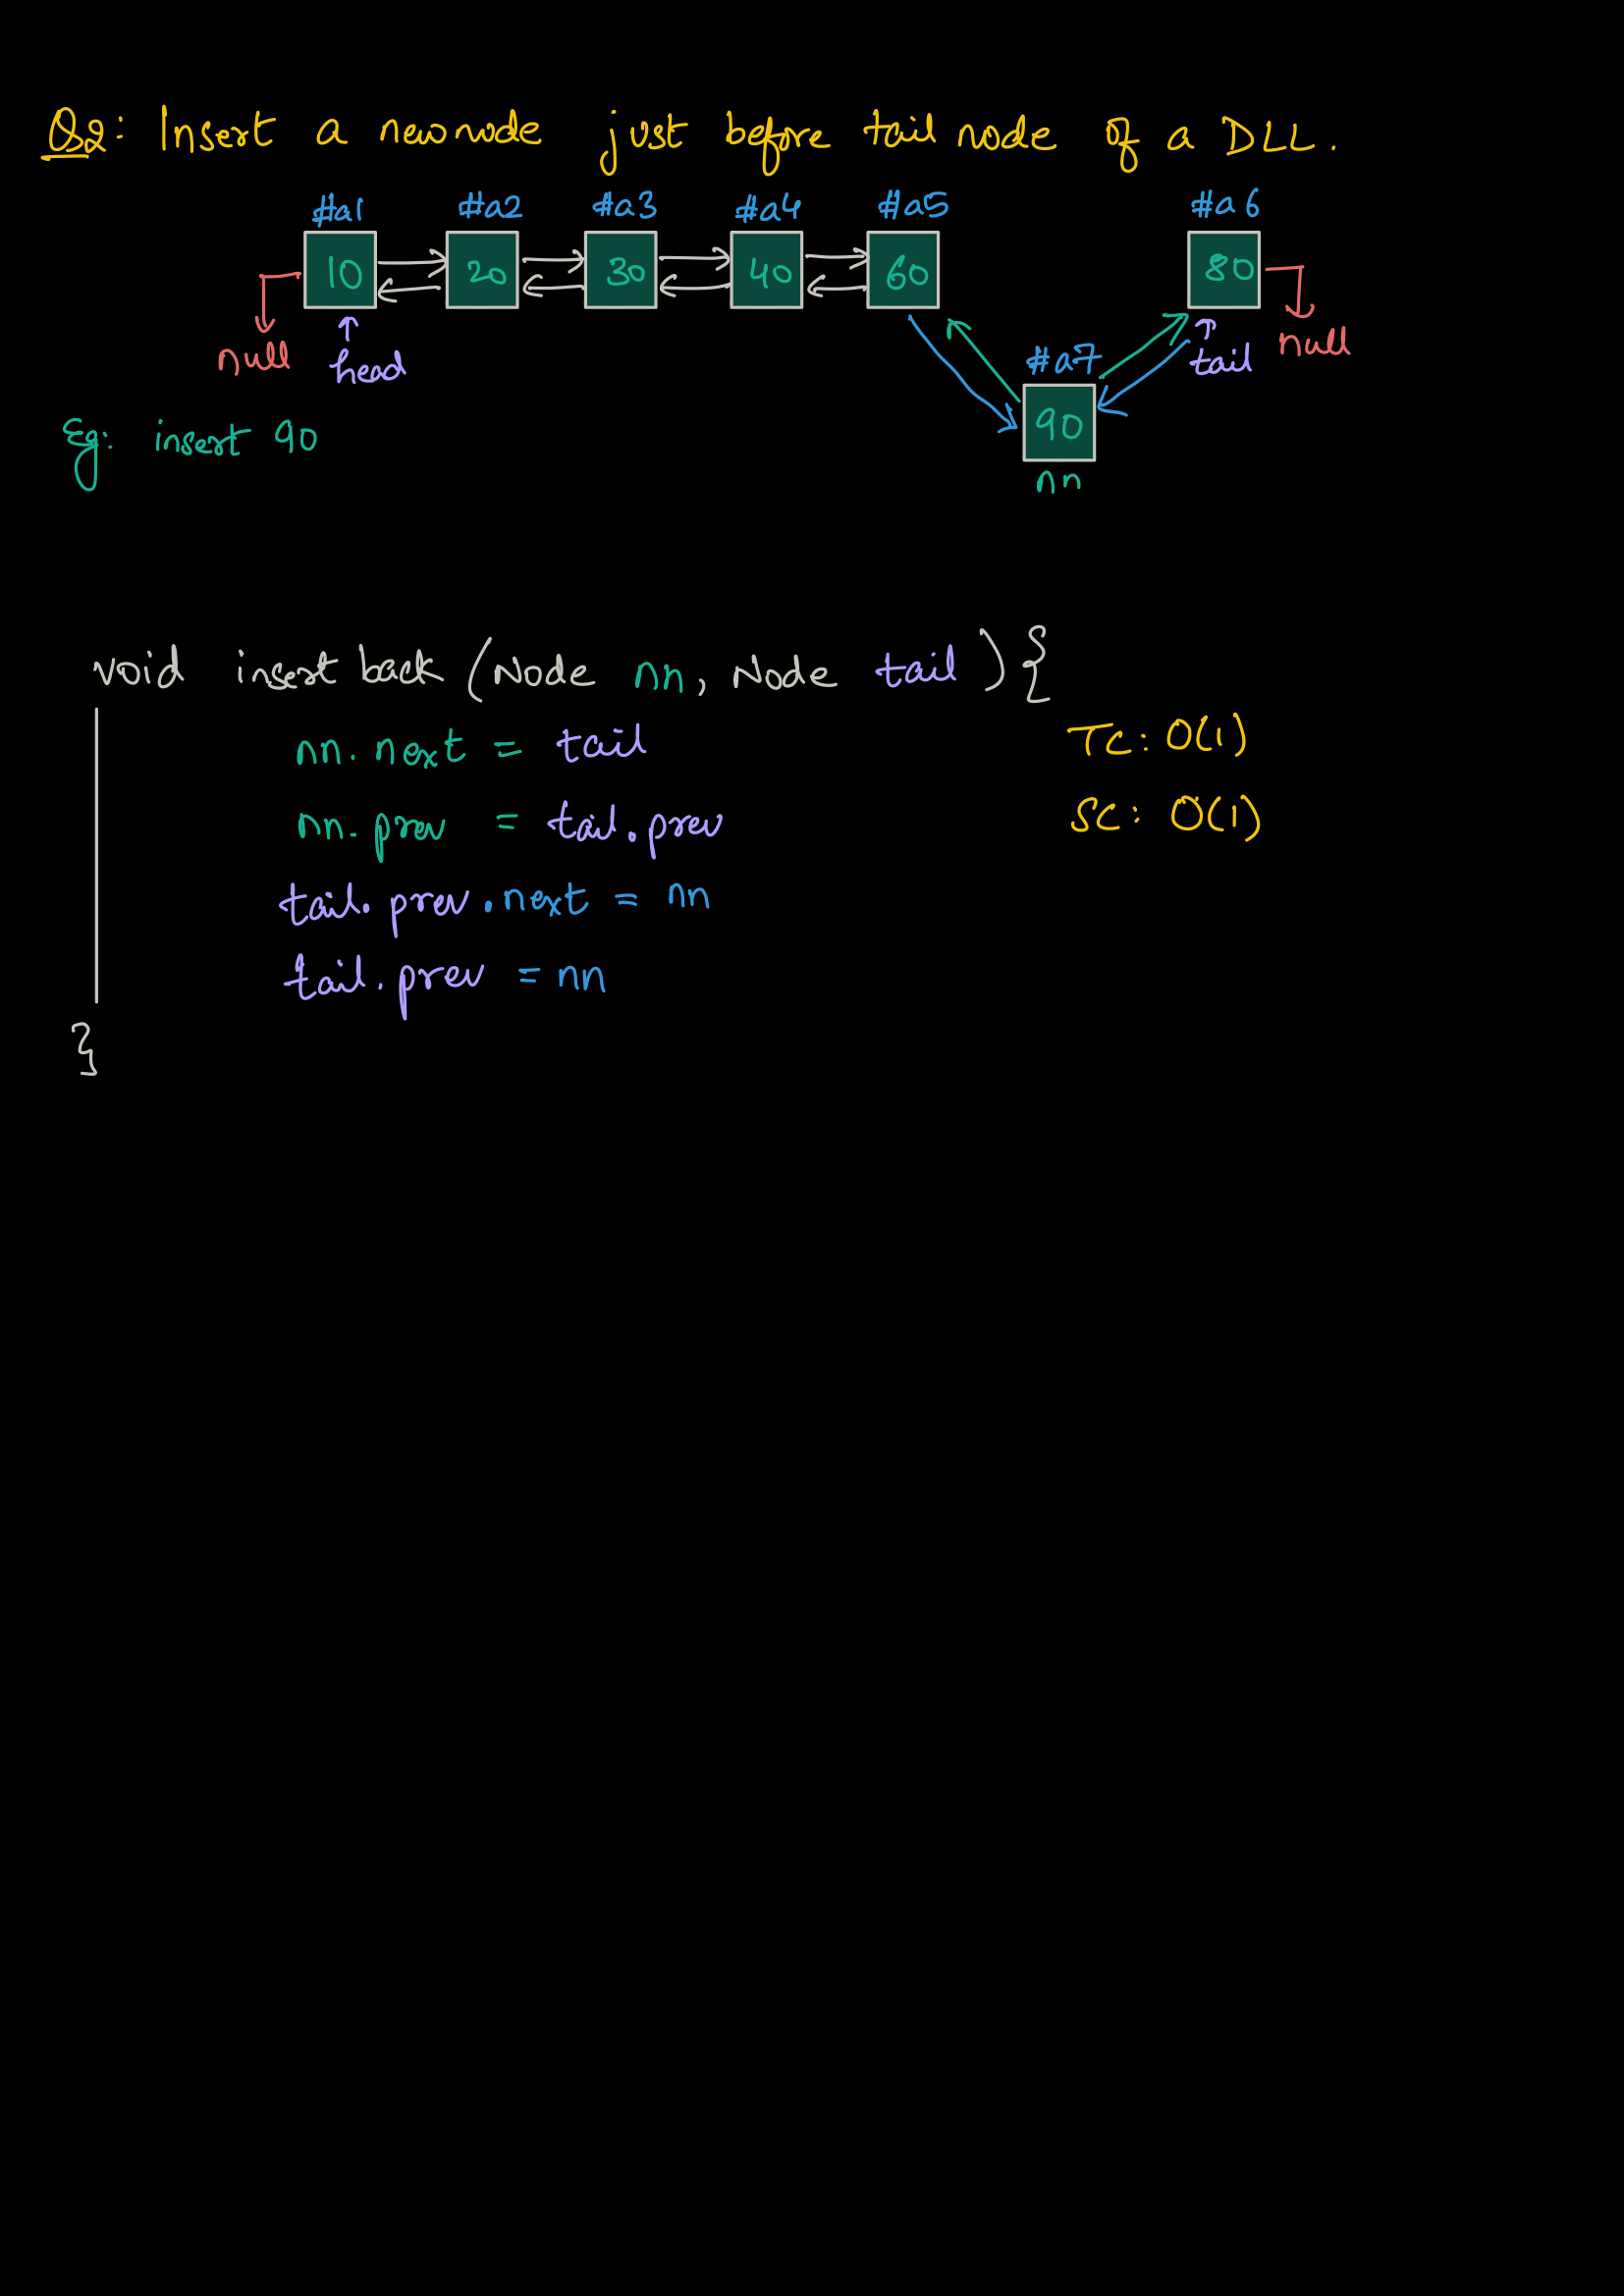 Qs2: Insert a newnode just before tail node of a DLL.
#a1 #a2 #a3 #a4 #a5 #a6
10 20 30 40 60 80
null head #a7 tail null
90
Eg: insert 90
nn
void insert back (Node nn, Node tail) {
nn. next = tail TC: O(1)
nn. prev = tail.prev SC: O(1)
tail. prev. next = nn
tail. prev = nn
}